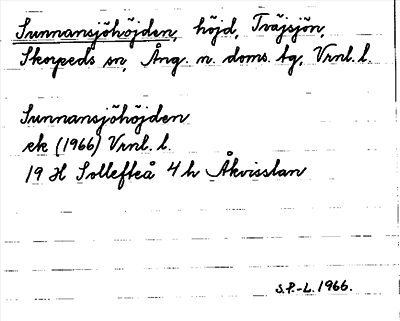 Sunnansjöhöjden, höjd, Tväjsjön,
Skorpeds sn, Ång. n. doms. tg, Vrnl. l.
Sunnansjöhöjden
ek (1966) Vrnl. l.
19 H Sollefteå 4 h Åkvisslan
S.P.-L. 1966.